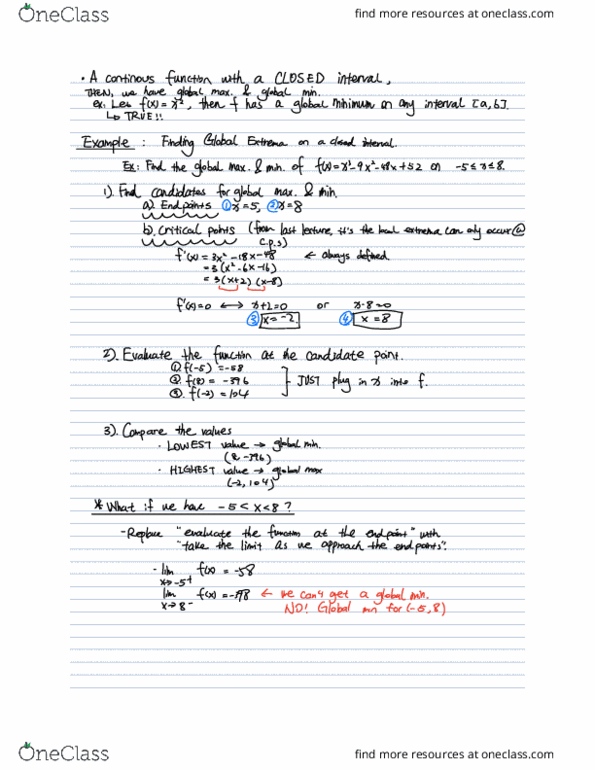 OneClass
find more resources at oneclass.com
• A continous function with a CLOSED interval,
THEN, we have global max. & global min.
ex: Let f(x) = x², then f has a global minimum on any interval [a,b].
↳ TRUE!!
Example : Finding Global Extrema on a closed interval.
Ex: Find the global max. & min. of f(x)=x³-9x²-48x+52 on -5≤x≤8.
1). Find candidates for global max. & min.
a). Endpoints ① x=5, ② x=8
b). Critical points (from last lecture, it's the local extrema can only occur @ c.p.s)
f'(x) = 3x² - 18x - 48 ← always defined.
= 3 (x² - 6x - 16)
= 3 (x+2) (x-8)
f'(x)=0 ⟷ x+2=0 or x-8=0
③ x = -2. ④ x = 8
2). Evaluate the function at the candidate point.
①. f(-5) = -58
②. f(8) = -396 } JUST plug in x into f.
③. f(-2) = 104
3). Compare the values
• LOWEST value → global min.
(8, -396)
• HIGHEST value → global max
(-2, 104)
* What if we have -5 < x < 8 ?
- Replace "evaluate the function at the endpoint" with
"take the limit as we approach the endpoints".
- lim f(x) = -58
x→-5⁺
lim f(x) = -398 ← we can't get a global min.
x→8⁻ NO! Global min for (-5, 8)
OneClass
find more resources at oneclass.com